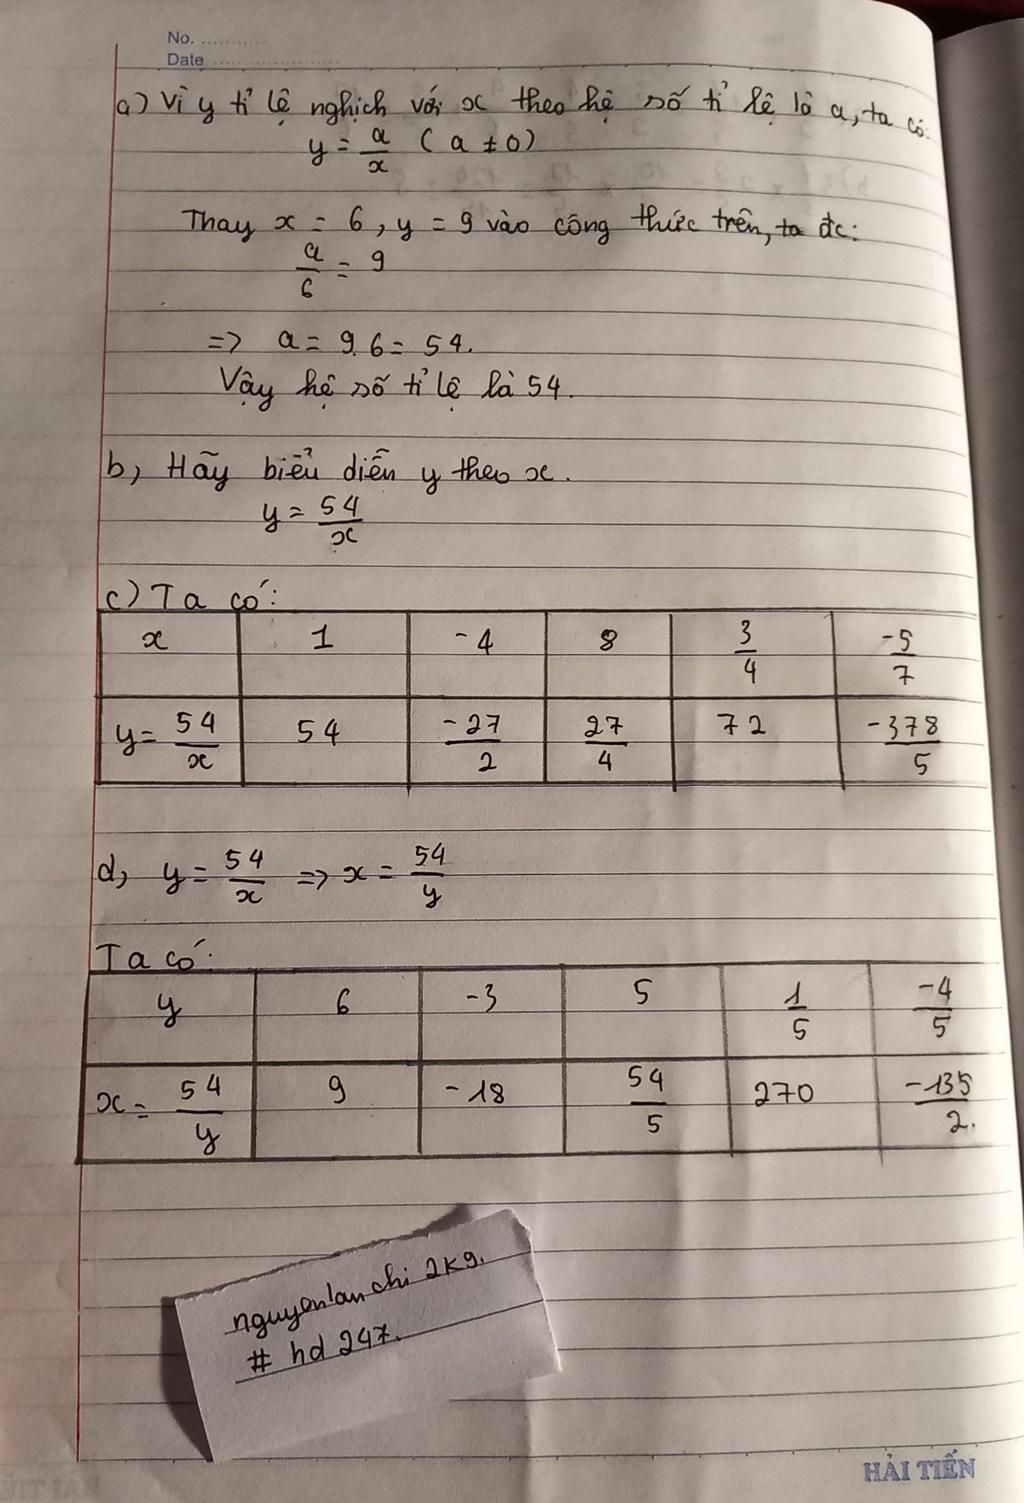 No. ............
Date .......................
a) Vì y tỉ lệ nghịch với x theo hệ số tỉ lệ là a, ta có:
y = a/x ( a ≠ 0)
Thay x = 6, y = 9 vào công thức trên, ta đc:
a/6 = 9
=> a = 9.6 = 54.
Vậy hệ số tỉ lệ là 54.
b, Hãy biểu diễn y theo x.
y = 54/x
c) Ta có:
x 1 -4 8 3/4 -5/7
y = 54/x 54 -27/2 27/4 72 -378/5
d, y = 54/x => x = 54/y
Ta có:
y 6 -3 5 1/5 -4/5
x = 54/y 9 -18 54/5 270 -135/2.
nguyenlanchi 2k9.
# hd 247.
HẢI TIẾN